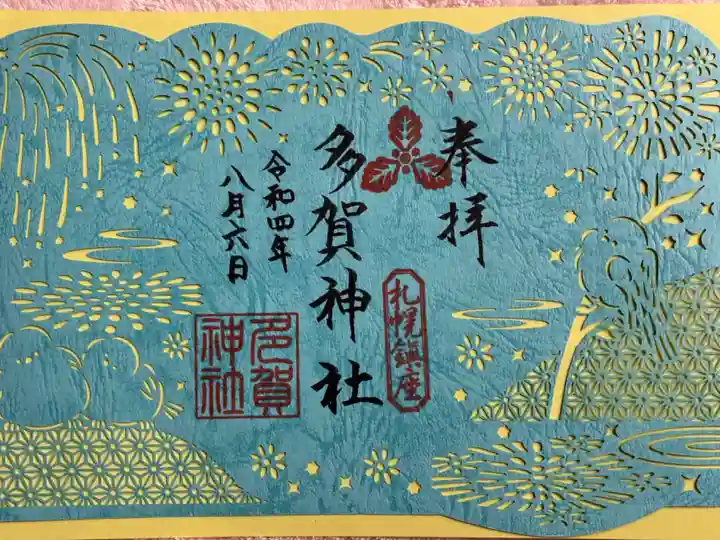 奉拝
札幌鎮座
多賀神社
多賀
神社
令和四年
八月六日